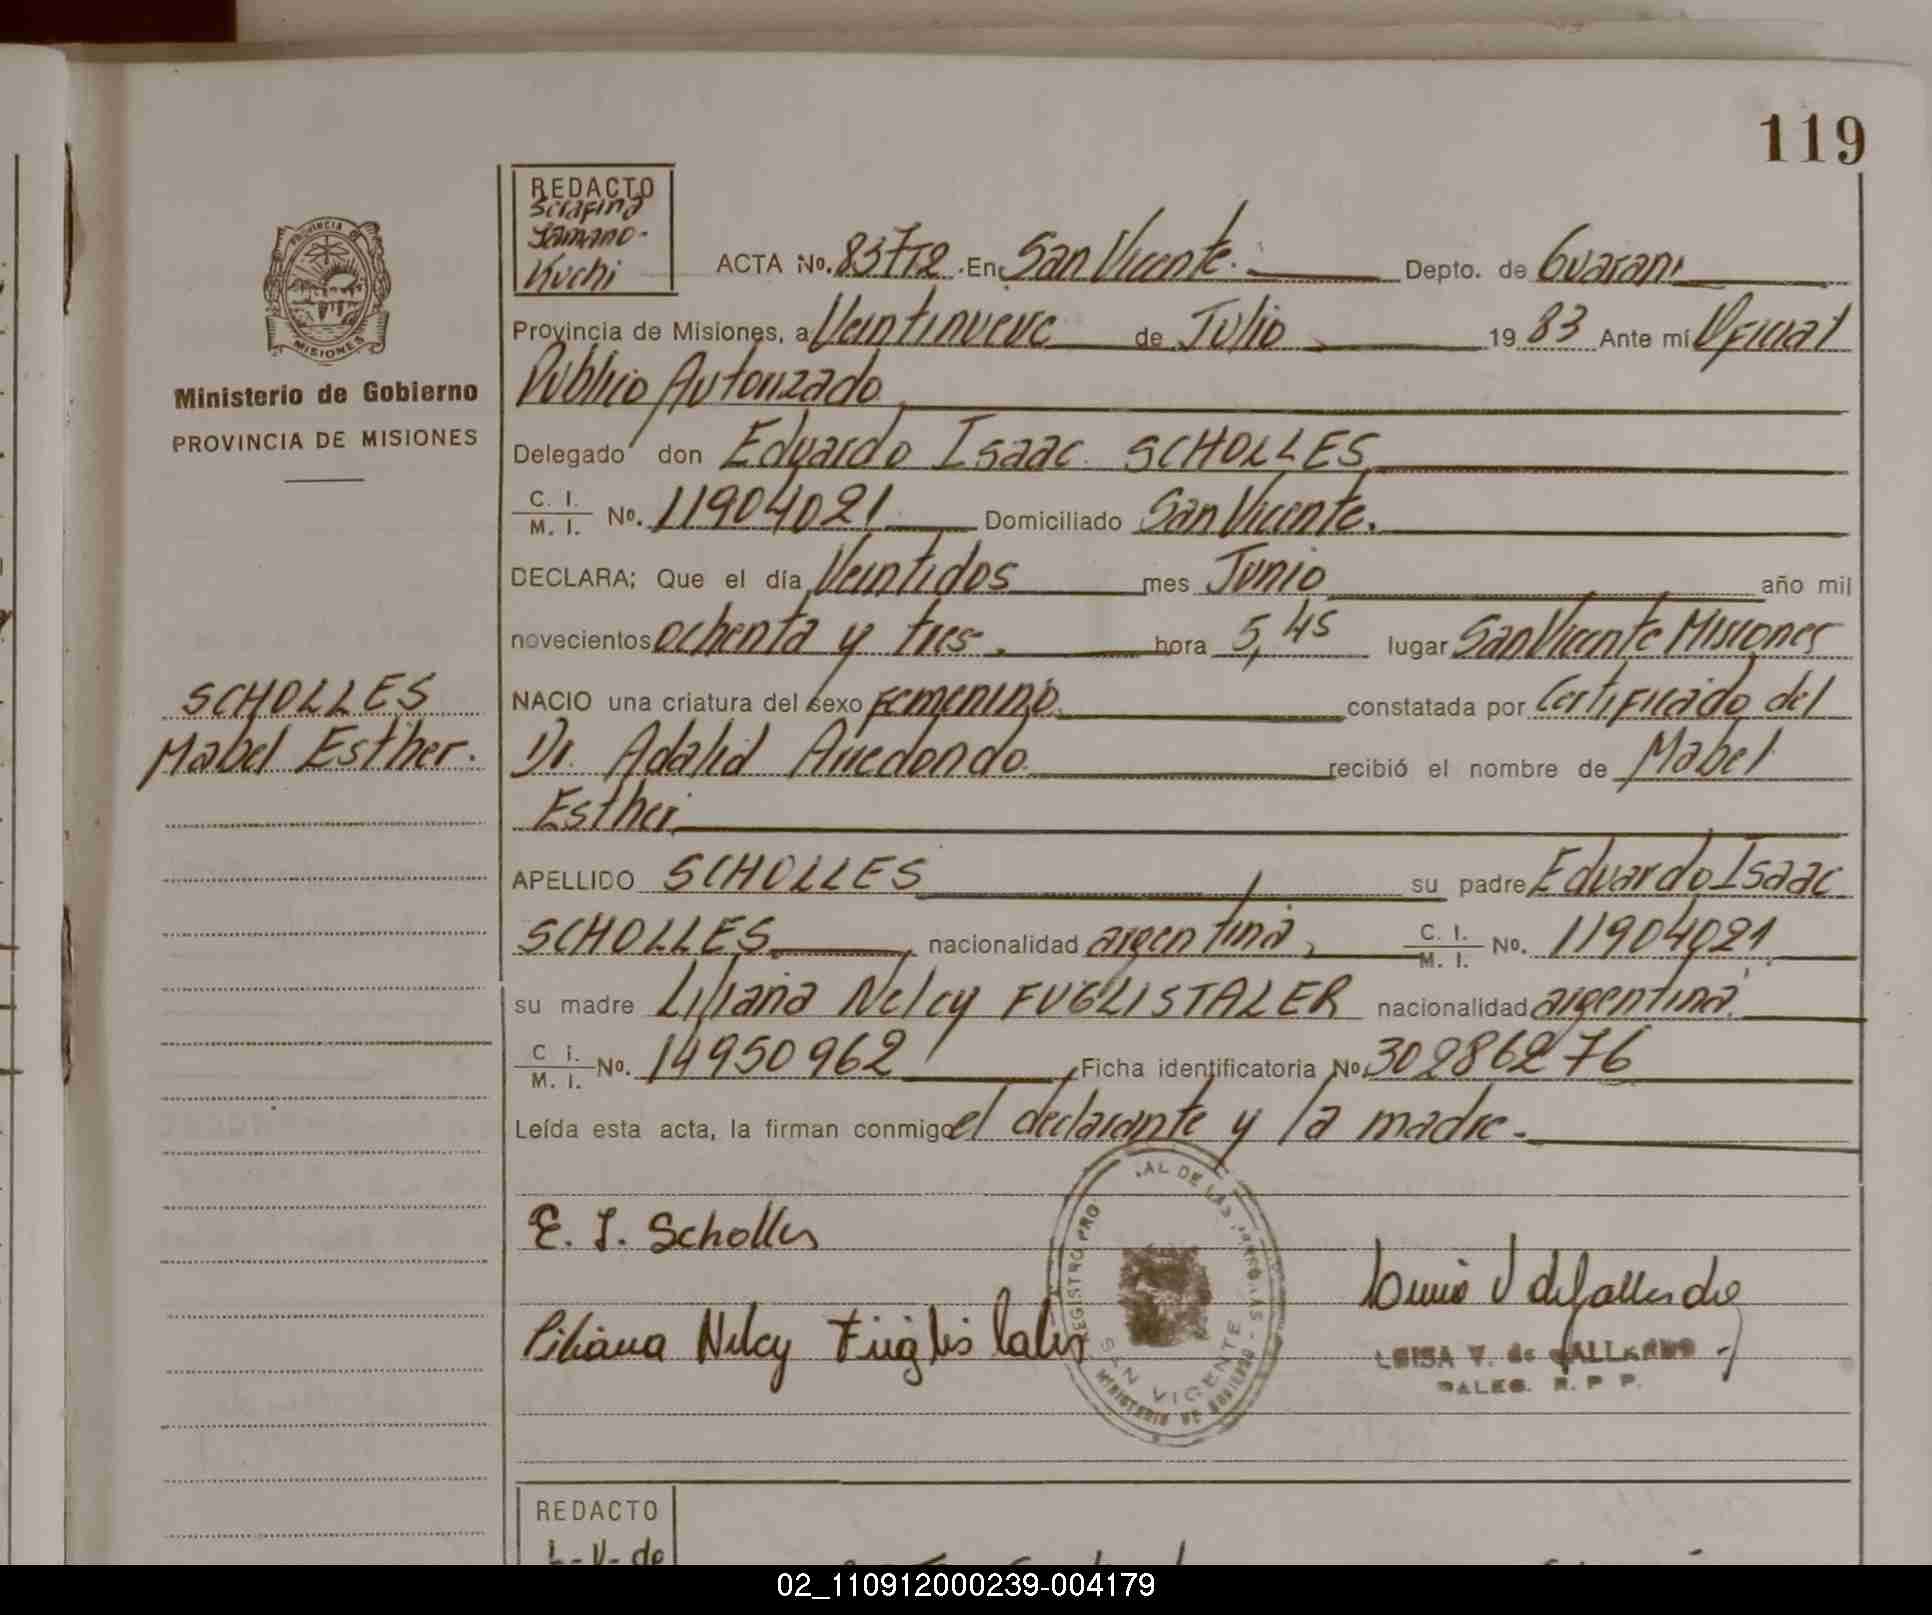 119
REDACTO
Serafina
Tamano-
Kuchi
ACTA No. 83712 .En San Vicente. Depto. de Guarani
Provincia de Misiones, a Veintinueve de Julio 19 83 Ante mí Oficial
Publico Autorizado
Delegado don Eduardo Isaac SCHOLLES
C. I. / M. I. No. 11904021 Domiciliado San Vicente.
DECLARA; Que el día Veintidos mes Junio año mil
novecientos ochenta y tres. hora 5,45 lugar San Vicente Misiones
NACIO una criatura del sexo femenino constatada por Certificado del
Dr. Adalid Arredondo recibió el nombre de Mabel
Esther
APELLIDO SCHOLLES su padre Eduardo Isaac
SCHOLLES nacionalidad argentina, C. I. / M. I. No. 11904021
su madre Liliana Nelcy FUGLISTALER nacionalidad argentina
C i. / M. I. No. 14950962 Ficha identificatoria No 30286276
Leída esta acta, la firman conmigo el declarante y la madre.
E. I. Scholles
Liliana Nelcy Fuglistaler
REGISTRO PRO AL DE LAS
SAN VICENTE
MINISTERIO DE GOBIERNO
LUISA V. de GALLARDO
DALEG. R. P P.
PROVINCIA DE
MISIONES
Ministerio de Gobierno
PROVINCIA DE MISIONES
SCHOLLES
Mabel Esther.
REDACTO
L-V-de
02_110912000239-004179